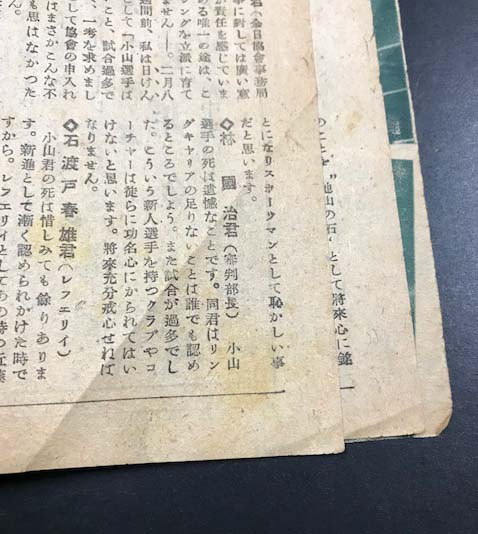 のことを〝他山の石〟として將來心に銘
とになりスポーツマンとして恥かしい事
だと思います。
◇林 國治君（審判部長） 小山
選手の死は遺憾なことです。同君はリン
グキャリアの足りないことは誰でも認め
るところでしょう。また試合が過多でし
た。こういう新人選手を持つクラブやコ
ーチャーは徒らに功名心にかられてはい
けないと思います。將來充分戒心せねば
なりません。
◇石渡戸春雄君（レフエリイ）
小山君の死は惜しみても餘りありま
す。新進として漸く認められかけた時で
すから。レフエリイとしてあの時の
日協會事務局
事に對しては廣い意
が責任を感じていま
る唯一の途は、こ
ングを立派に育て
ません――。二月八
週間前、私は日けん
して「小山選手は
こと、試合過多で
、一考を求めまし
して協會の申入れ
はまさかこんな不
も思はなかつた
ん。